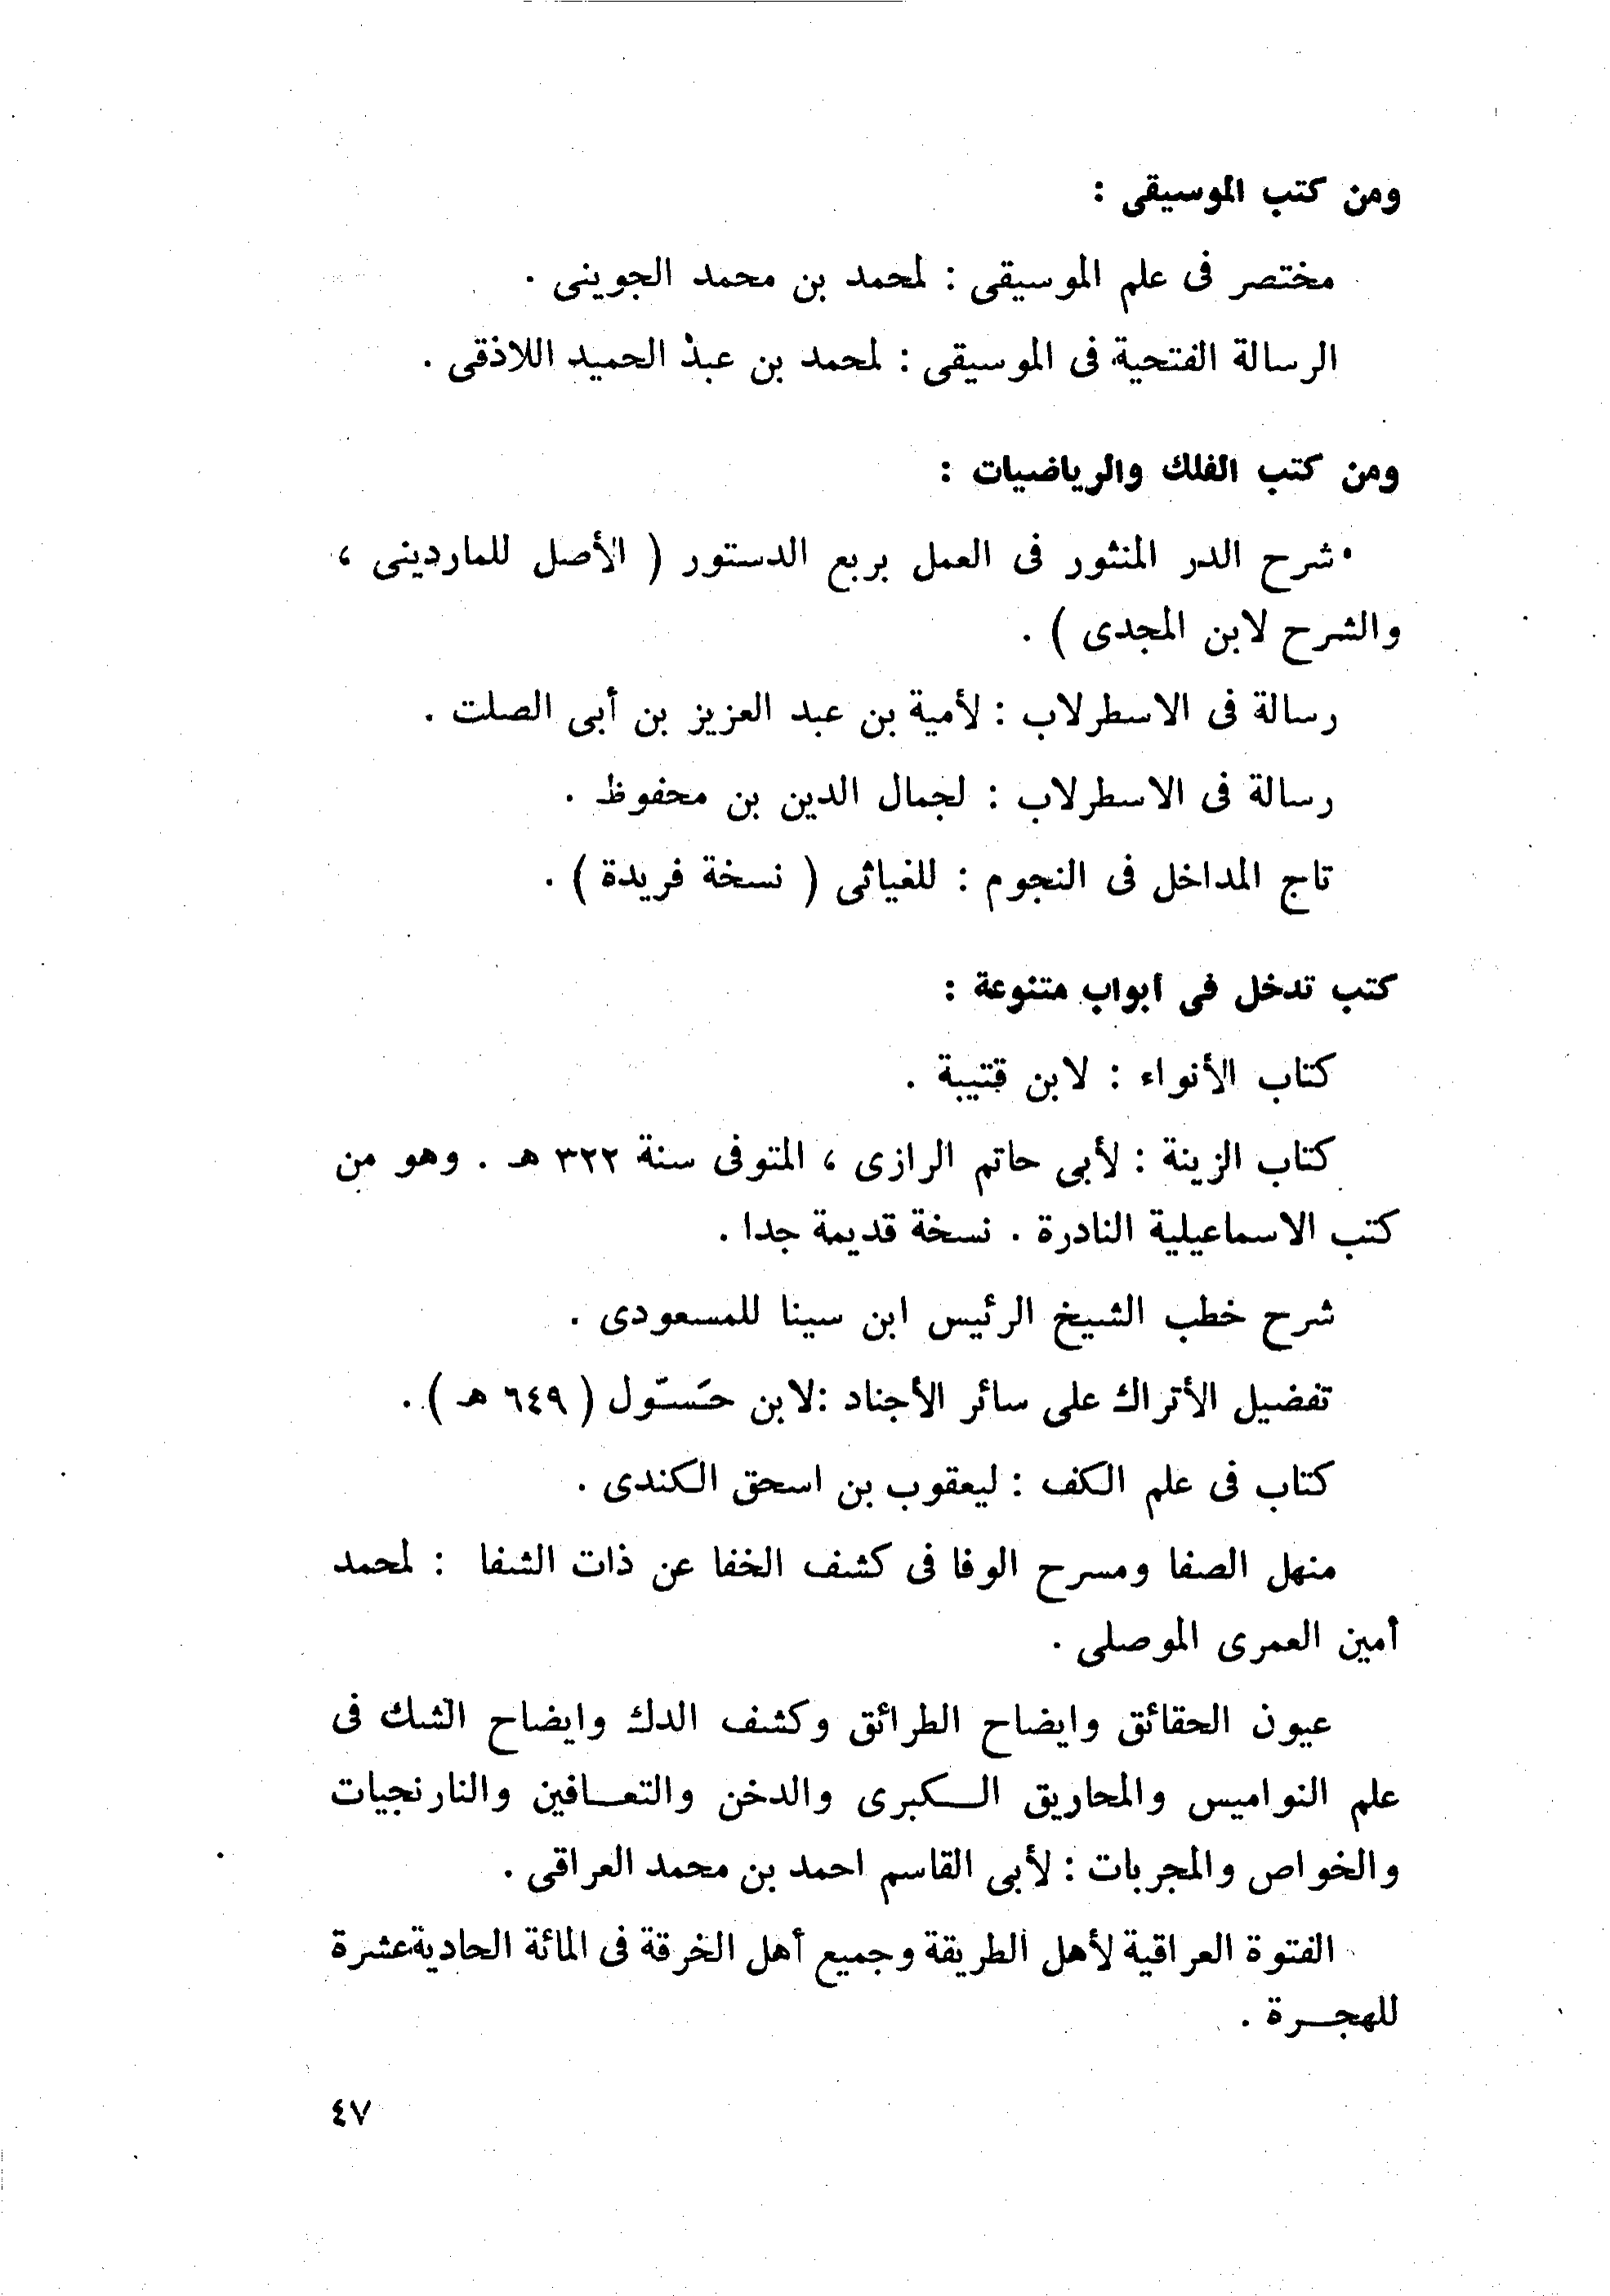 ومن كتب الموسيقى :
مختصر فى علم الموسيقى : لمحمد بن محمد الجوينى .
الرسالة الفتحية فى الموسيقى : لمحمد بن عبد الحميد اللاذقى .
ومن كتب الفلك والرياضيات :
شرح الدر المنثور فى العمل بربع الدستور ( الأصل للماردينى ،
والشرح لابن المجدى ) .
رسالة فى الاسطرلاب : لأمية بن عبد العزيز بن أبى الصلت .
رسالة فى الاسطرلاب : لجمال الدين بن محفوظ .
تاج المداخل فى النجوم : للغياثى ( نسخة فريدة ) .
كتب تدخل فى ابواب متنوعة :
كتاب الأنواء : لابن قتيبة .
كتاب الزينة : لأبى حاتم الرازى ، المتوفى سنة ٣٢٢ هـ . وهو من
كتب الاسماعيلية النادرة . نسخة قديمة جدا .
شرح خطب الشيخ الرئيس ابن سينا للمسعودى .
تفضيل الأتراك على سائر الأجناد : لابن حَسّول ( ٦٤٩ هـ ) .
كتاب فى علم الكف : ليعقوب بن اسحق الكندى .
منهل الصفا ومسرح الوفا فى كشف الخفا عن ذات الشفا : لمحمد
أمين العمرى الموصلى .
عيون الحقائق وايضاح الطرائق وكشف الدك وايضاح الشك فى
علم النواميس والمحاريق الكبرى والدخن والتعافين والنارنجيات
والخواص والمجربات : لأبى القاسم احمد بن محمد العراقى .
الفتوة العراقية لأهل الطريقة وجميع أهل الخرقة فى المائة الحادية عشرة
للهجرة .
٤٧